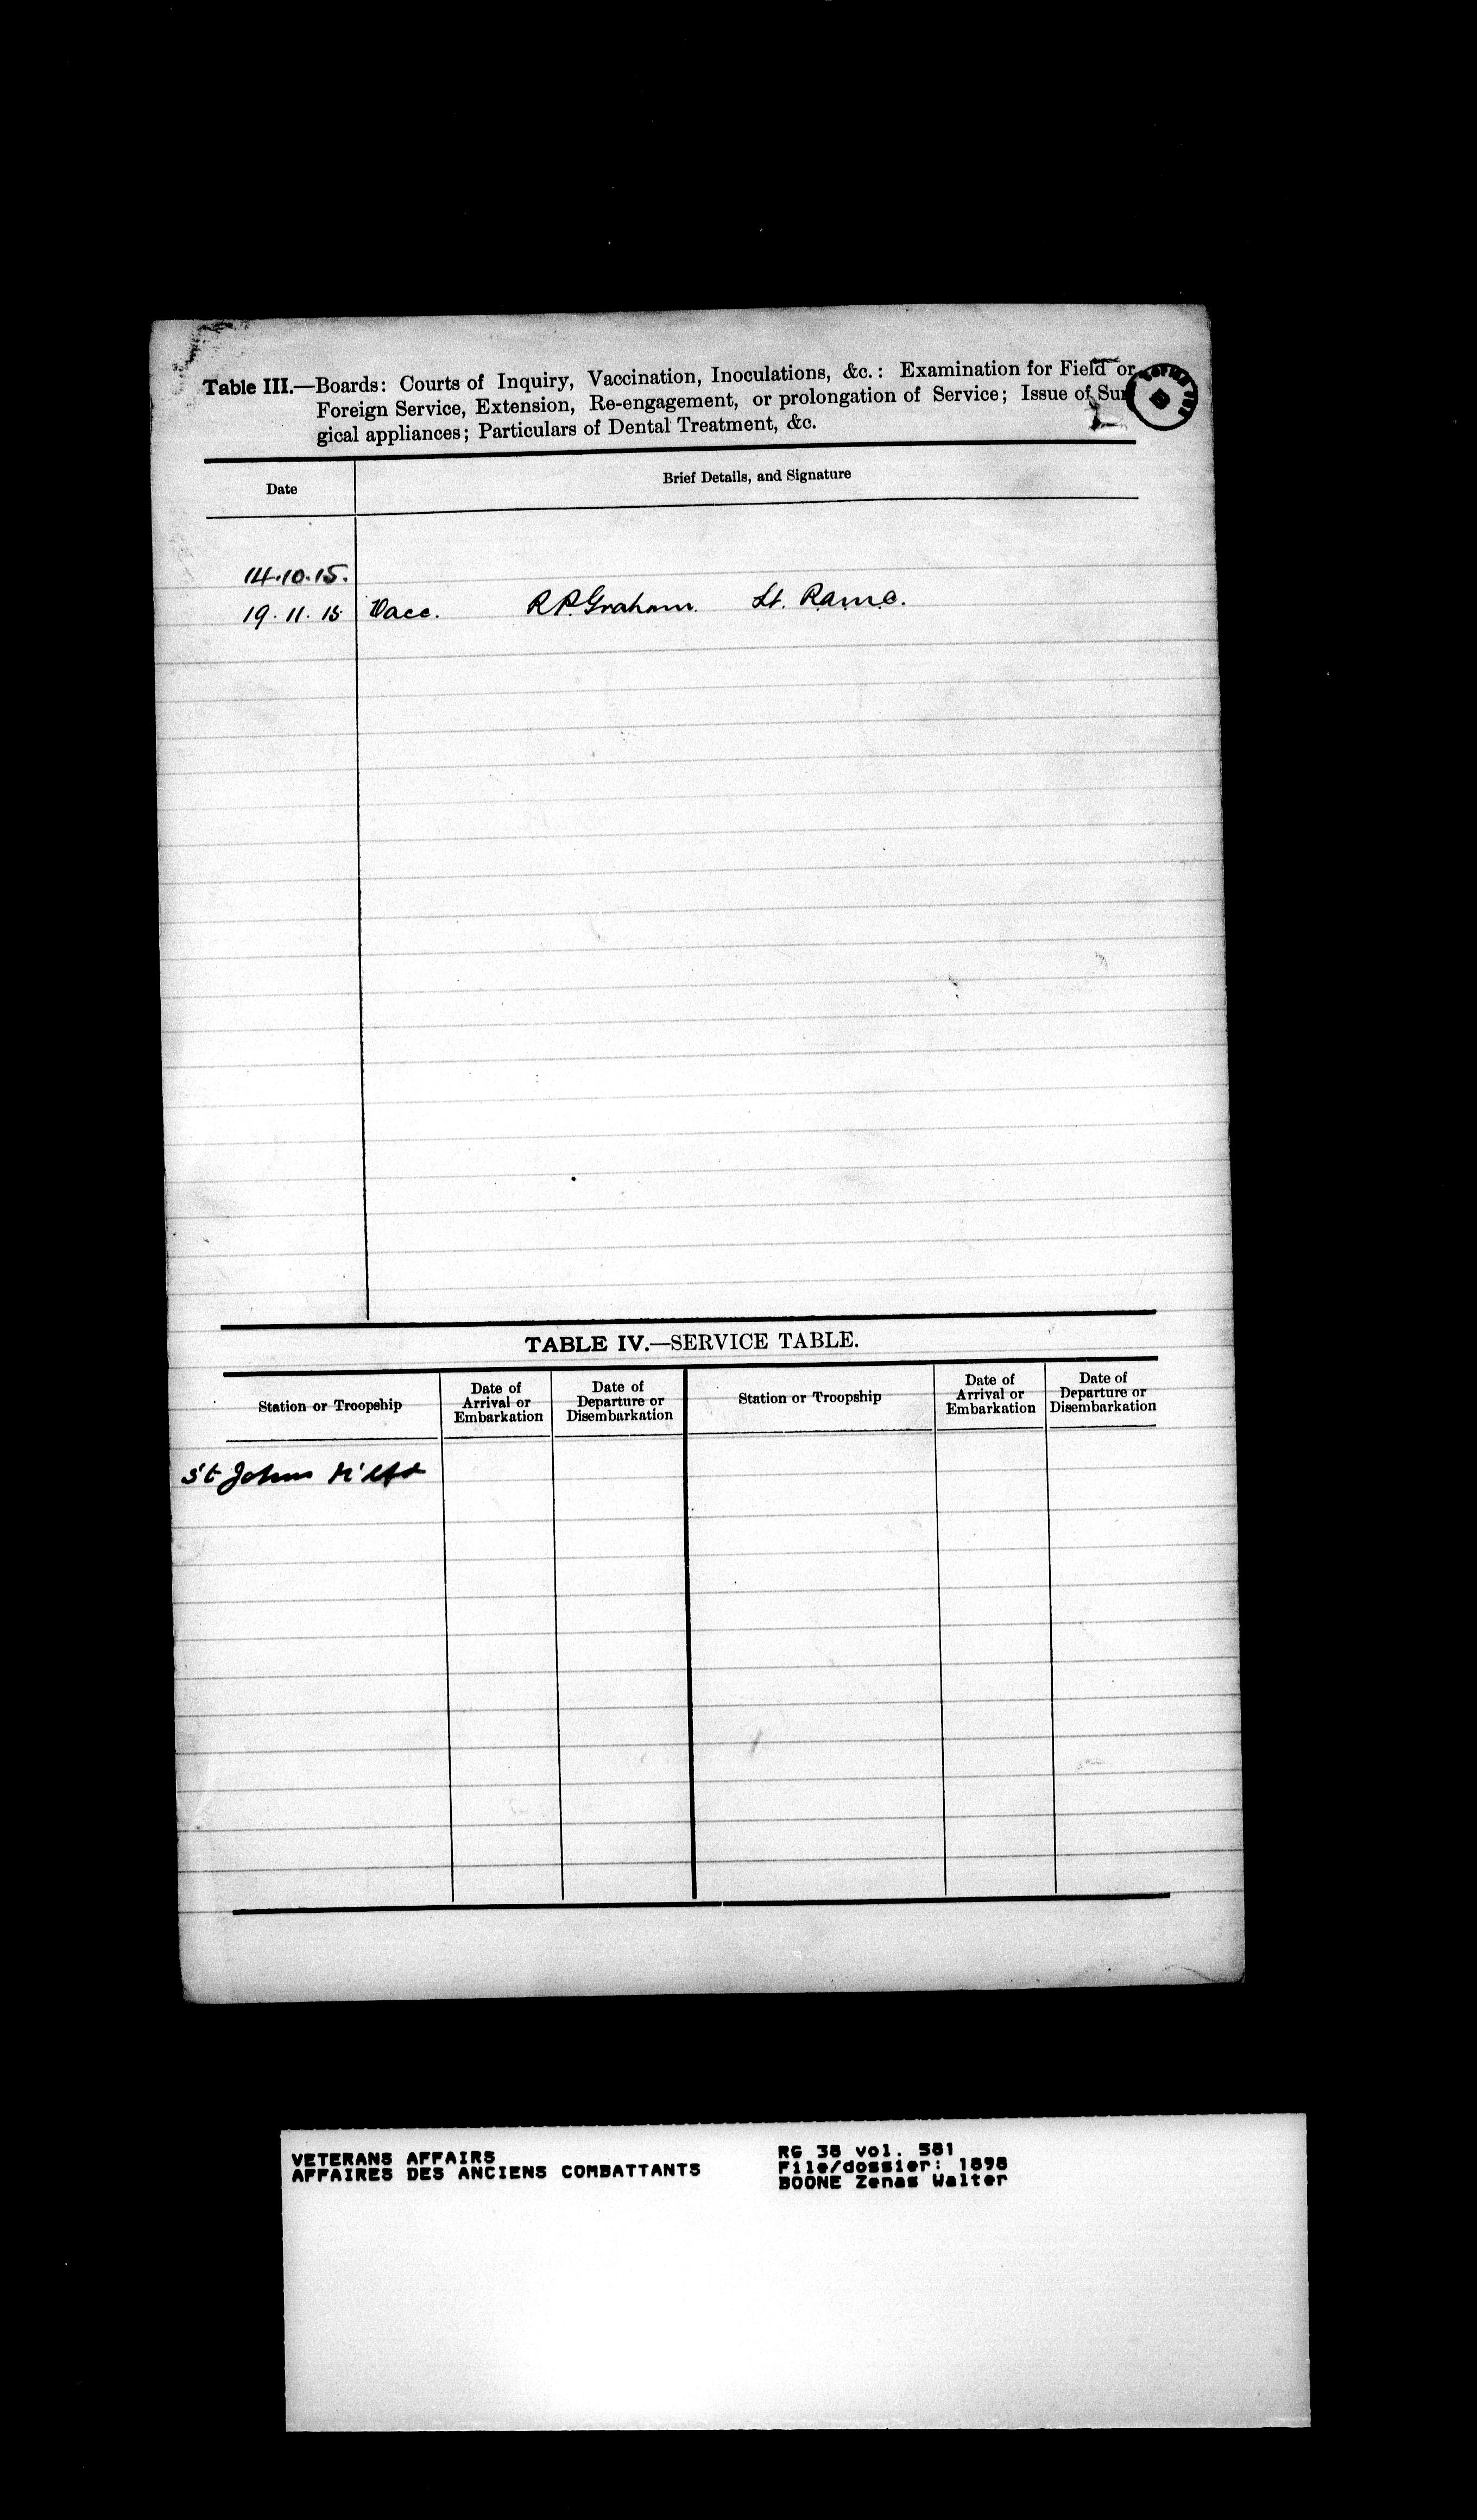 Table III.—Boards: Courts of Inquiry, Vaccination, Inoculations, &c.: Examination for Field or
Foreign Service, Extension, Re-engagement, or prolongation of Service; Issue of Sur
gical appliances; Particulars of Dental Treatment, &c.
Date Brief Details, and Signature
14.10.15.
19.11.15 Vacc. R P. Graham. Lt. R.a.m.c.
TABLE IV.—SERVICE TABLE.
Station or Troopship
Date of
Arrival or
Embarkation
Date of
Departure or
Disembarkation
Station or Troopship
Date of
Arrival or
Embarkation
Date of
Departure or
Disembarkation
St Johns N'fld
VETERANS AFFAIRS
AFFAIRES DES ANCIENS COMBATTANTS
RG 38 vol. 581
File/dossier: 1898
BOONE Zenas Walter